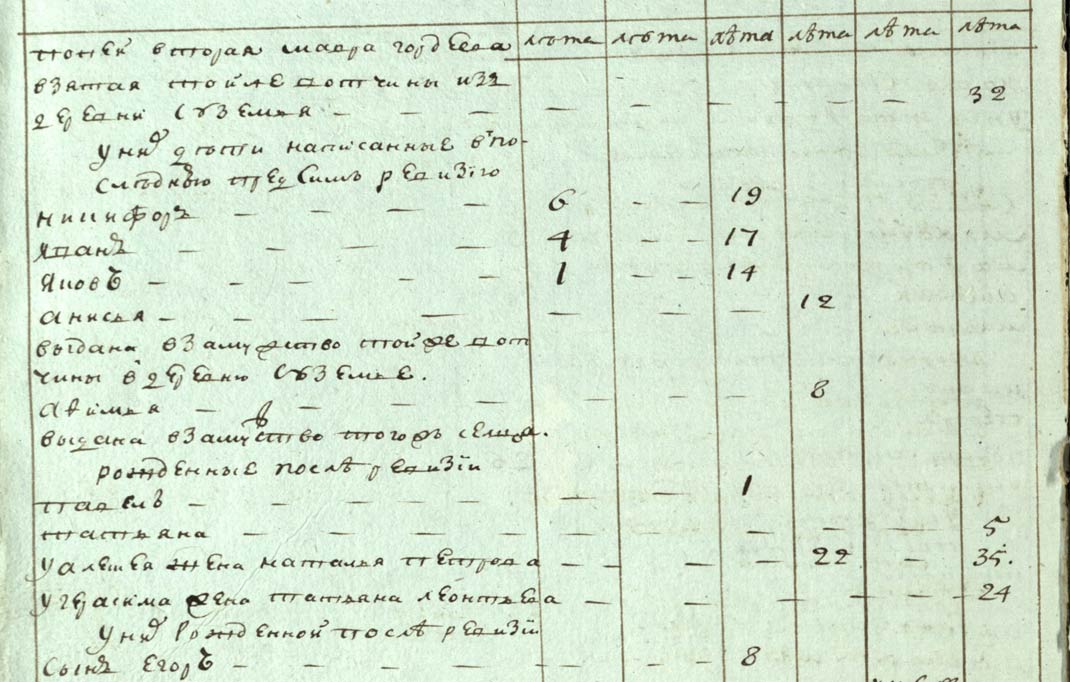 лѣта лѣта лѣта лѣта лѣта лѣта
вторая мавра гордеева
взятая тойже вотчины изъ
деревни Съземья — — — — — — — — — 32
у нихъ дѣти написанные впо-
слѣднюю предъ симъ ревизiю
никифоръ — — — — 6 — — 19
иванъ — — — — 4 — — 17
яковъ — — — — 1 — — 14
анисья — — — — — — — 12
выдана взамужство тойже вот
чины вдеревню Съземье.
авимья — — — — — — — 8
выдана взамужство тогожъ селца.
рожденные послѣ ревизiи
павелъ — — — — — — 1
татьяна — — — — — — — — — 5.
у алешея жена наталья петрова — — — — 22 — 35.
у герасима жена татьяна леонтьева — — — — — — 24
у нихъ рожденной послѣ ревизiи
сынъ егоръ — — — — — — 8